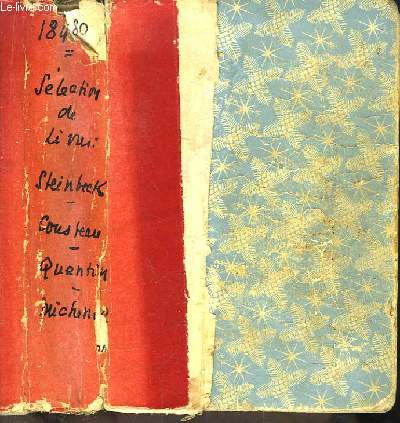 Le-livre.com
18480
=
Sélection
de
livres:
Steinbeck
-
Cousteau
-
Quentin
-